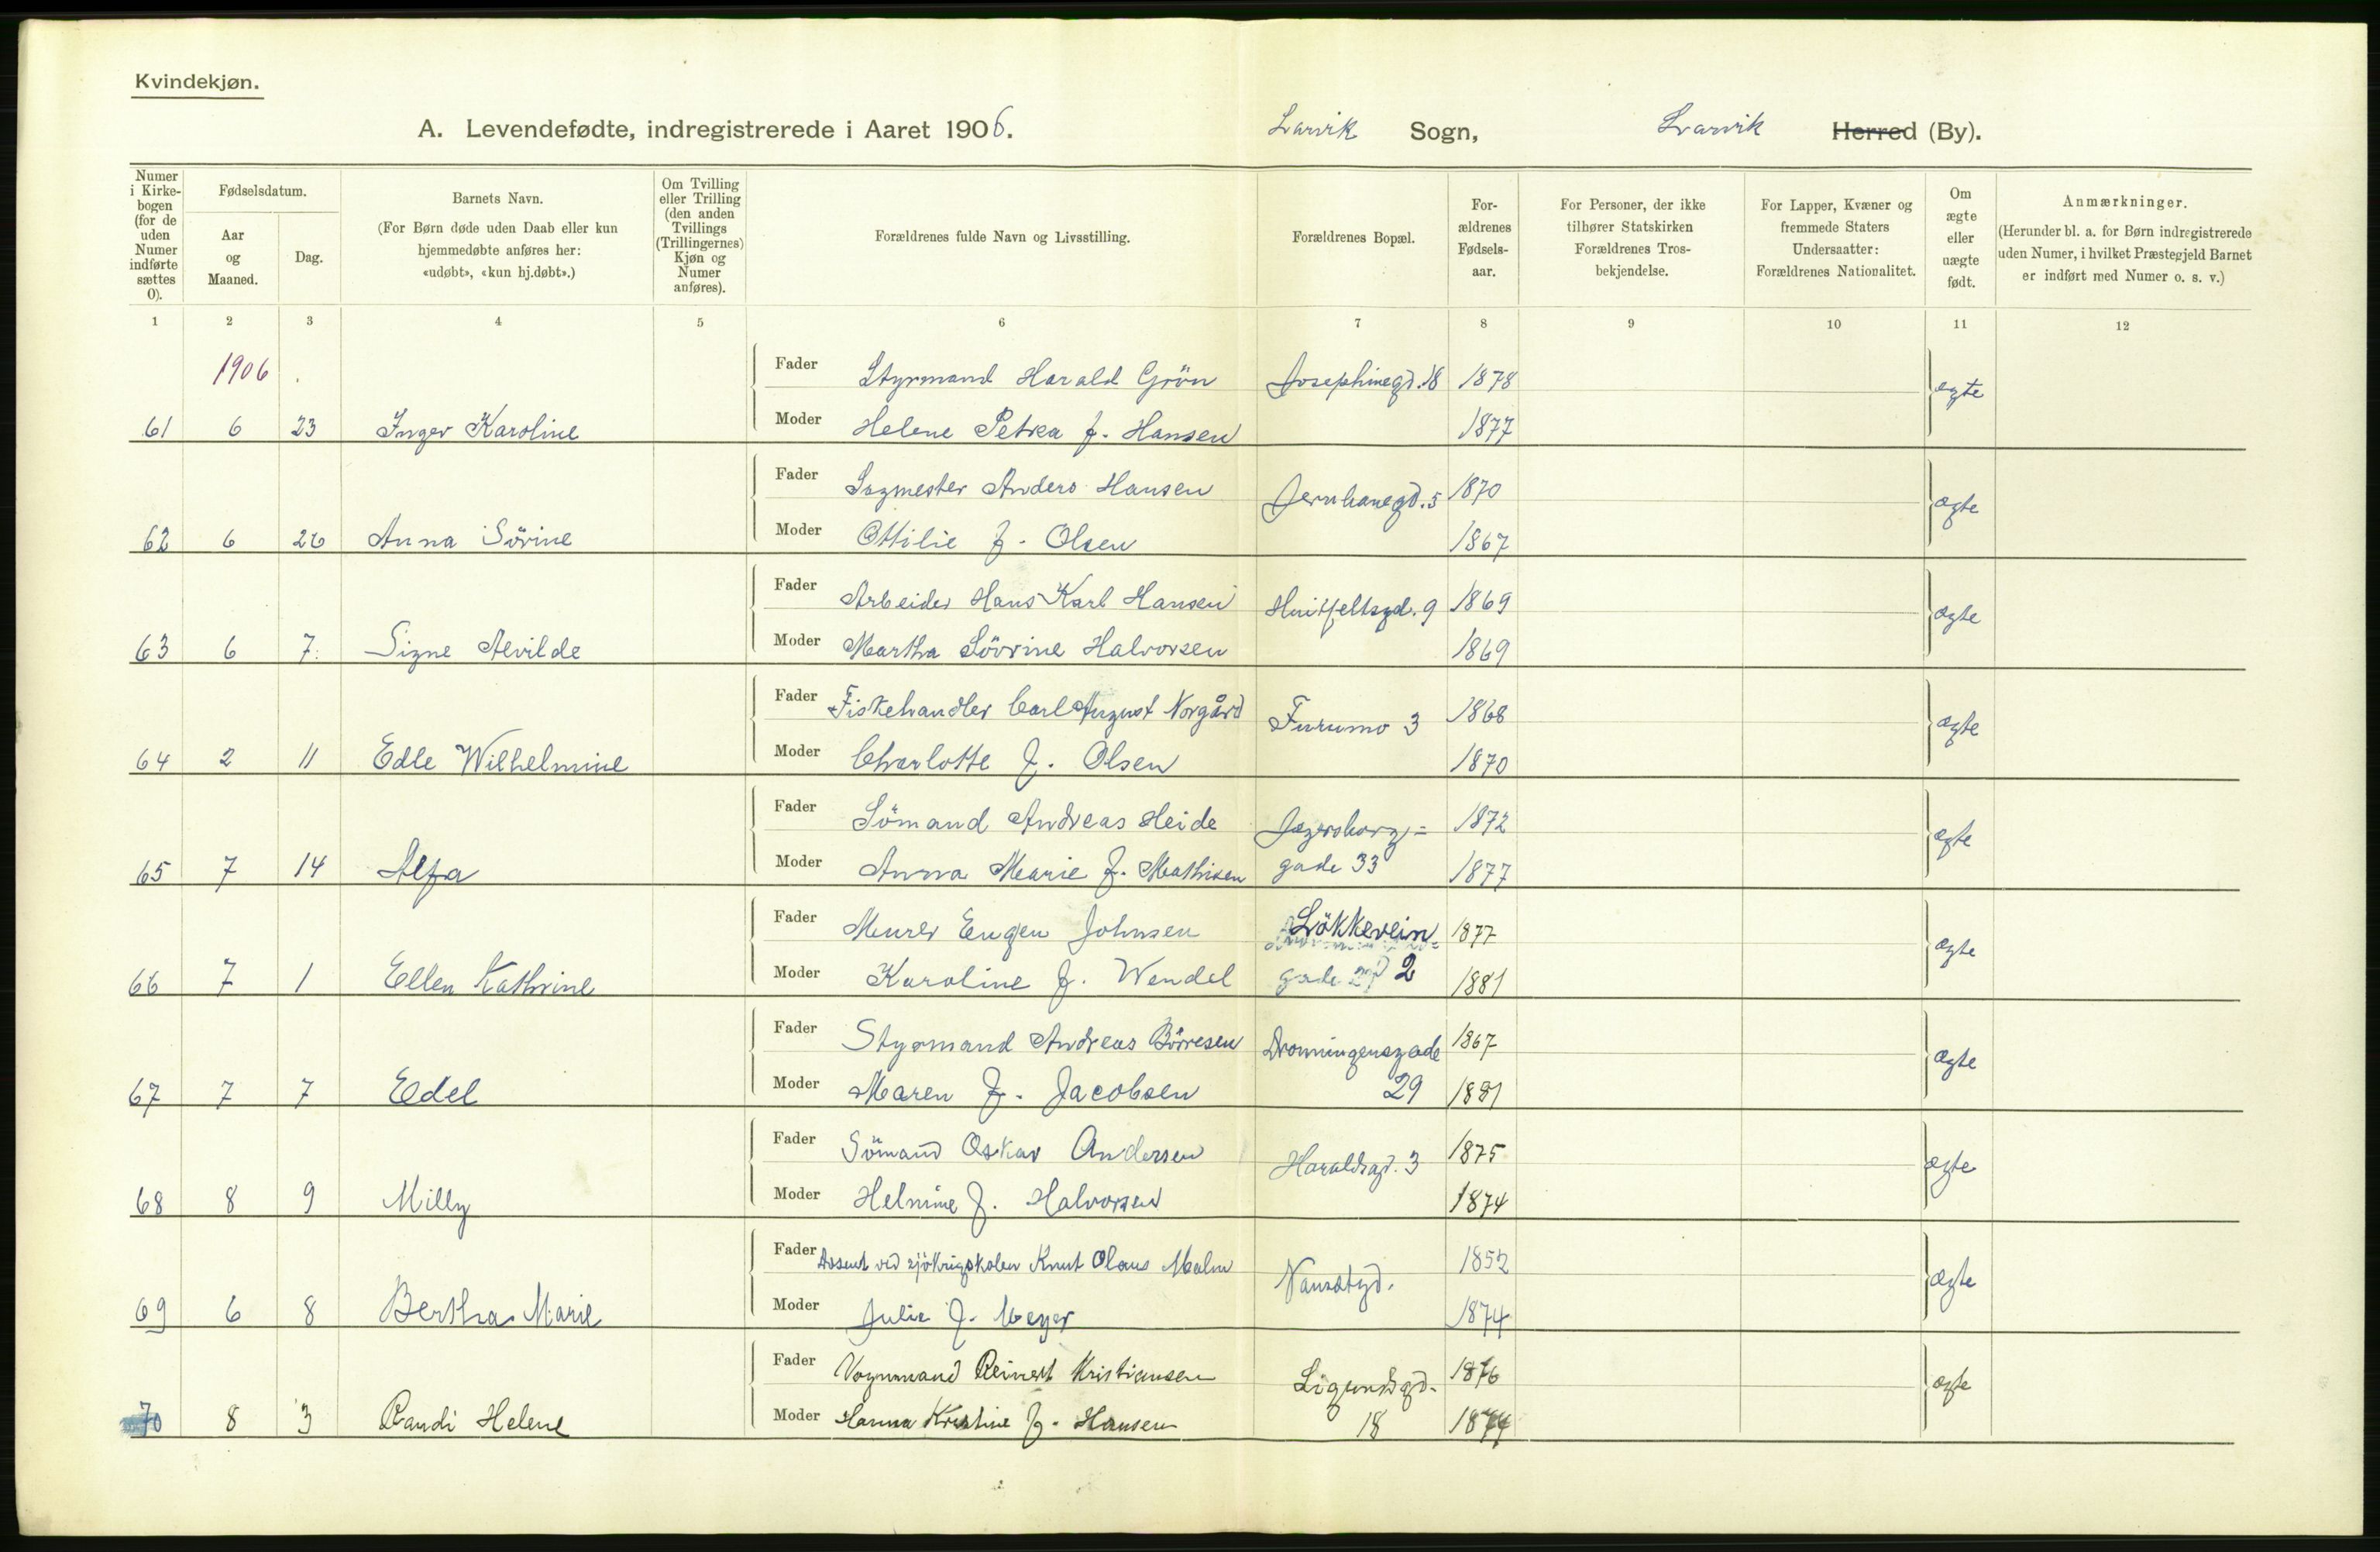 Kvindekjøn.
A. Levendefødte, indregistrerede i Aaret 1906. Larvik Sogn, Larvik Herred (By).
Numer i Kirkebogen (for de uden Numer indførte sættes 0).
Fødselsdatum.
Aar og Maaned.
Dag.
Barnets Navn.
(For Børn døde uden Daab eller kun hjemmedøbte anføres her: «udøbt», «kun hj.døbt».)
Om Tvilling eller Trilling (den anden Tvillings (Trillingernes) Kjøn og Numer anføres).
Forældrenes fulde Navn og Livsstilling.
Forældrenes Bopæl.
For-ældrenes Fødsels-aar.
For Personer, der ikke tilhører Statskirken Forældrenes Tros-bekjendelse.
For Lapper, Kvæner og fremmede Staters Undersaatter: Forældrenes Nationalitet.
Om ægte eller uægte født.
Anmærkninger.
(Herunder bl. a. for Børn indregistrerede uden Numer, i hvilket Præstegjeld Barnet er indført med Numer o. s. v.)
1 2 3 4 5 6 7 8 9 10 11 12
1906
Fader Styrmand Harald Grön Josephinegd. 18 1878 ægte
61 6 23 Inger Karoline Moder Helene Petrea f. Hansen 1877
Fader Sagmester Anders Hansen Jernbanegd. 5 1870 ægte
62 6 26 Anna Sörine Moder Ottilie f. Olsen 1867
Fader Arbeider Hans Karl Hansen Huitfeltsgd. 9 1869 ægte
63 6 7 Signe Alvilde Moder Martha Sövrine Halvorsen 1869
Fader Fiskehandler Carl August Norgård Furumo 3 1868 ægte
64 2 11 Edle Wilhelmine Moder Charlotte f. Olsen 1870
Fader Sömand Andreas Heide Jegersborg= 1872 ægte
65 7 14 Alfa Moder Anna Marie f. Mathisen gade 33 1877
Fader Murer Eugen Johnsen Lökkeveien 1877 ægte
66 7 1 Ellen Kathrine Moder Karoline f. Wendel gade 2 1881
Fader Styrmand Andreas Börresen Dronningensgade 1867 ægte
67 7 7 Edel Moder Maren f. Jacobsen 29 1881
Fader Sömand Oskar Andersen Haraldsgd. 3 1875 ægte
68 8 9 Milly Moder Helmine f. Halvorsen 1874
Fader ved sjökrigskolen Knut Olaus Malm Nansetgd. 1852 ægte
69 6 8 Bertha Marie Moder Julie f. Meyer 1874
Fader Vognmand Reinert Kristiansen Sigurdsgd. 1876 ægte
70 8 3 Randi Helene Moder Hanna Kristine f. Hansen 18